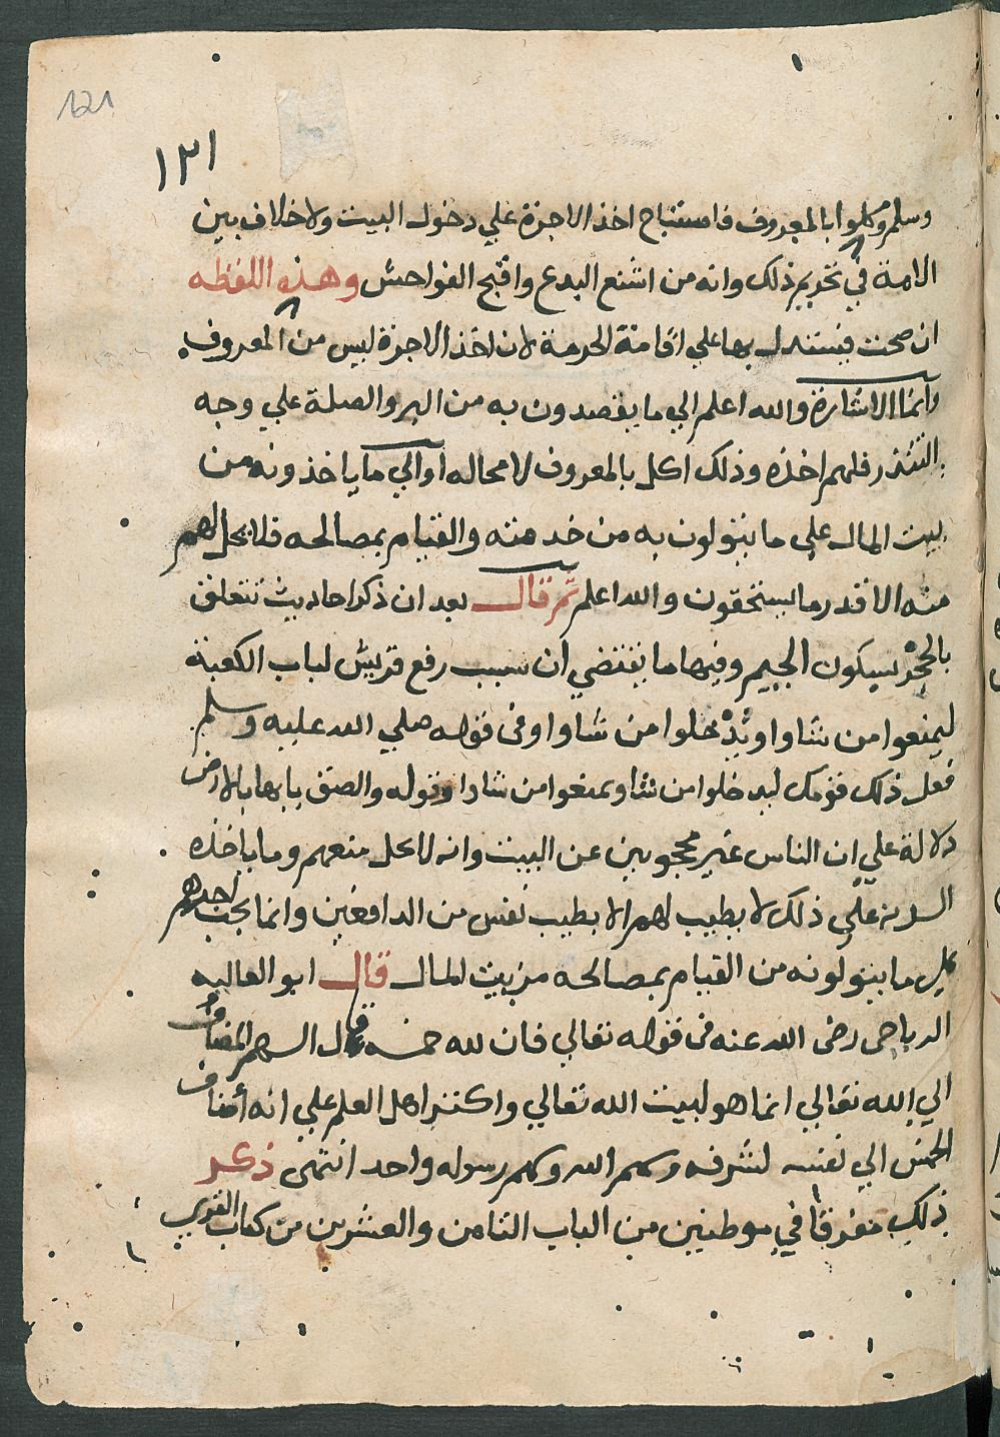 121
١٢١
وسلم وكلوا بالمعروف فاستباح اخذ الاجرة علي دخول البيت ولاخلاف بين
الامة في تحريم ذلك وانه من اشنع البدع واقبح الفواحش وهذه اللفظه
ان صحت فيستدل بها علي اقامة الحرمة لان اخذ الاجرة ليس من المعروف
وانما الاشارة والله اعلم الي ما يقصدون به من البر والصلة علي وجه
التبرر فلهم اخذه وذلك اكل بالمعروف لا محاله او الي ما ياخذونه من
بيت المال علي ما يتولون به من خدمته والقيام بمصالحه فلا يحل لهم
منه الا قدر ما يستحقون والله اعلم ثم قال بعد ان ذكر احاديث تتعلق
بالحجر بسكون الجيم وفيها ما يقتضي ان سبب رفع قريش لباب الكعبة
ليمنعوا من شاوا ويدخلوا من شاوا وفى قوله صلي الله عليه وسلم
فعل ذلك قومك ليدخلوا من شاوا ويمنعوا من شاوا وقوله والصق بابها بالارض
دلالة علي ان الناس غير محجوبين عن البيت وانه لا يحل منعهم وما ياخذه
السدنة علي ذلك لا يطيب لهم الا بطيب نفس من الدافعين وانما يجب اجرهم
علي ما يتولونه من القيام بمصالحه من بيت المال قال ابو العاليه
الرياحى رضى الله عنه فى قوله تعالي فان لله خمسه قال السهم المضاف
الي الله تعالي انما هو لبيت الله تعالي واكثر اهل العلم علي انه أضاف
الخمس الي نفسه لشرفه وسهم الله وسهم رسوله واحد انتهى ذكر
ذلك مفرقا في موطنين من الباب الثامن والعشرين من كتاب القرى